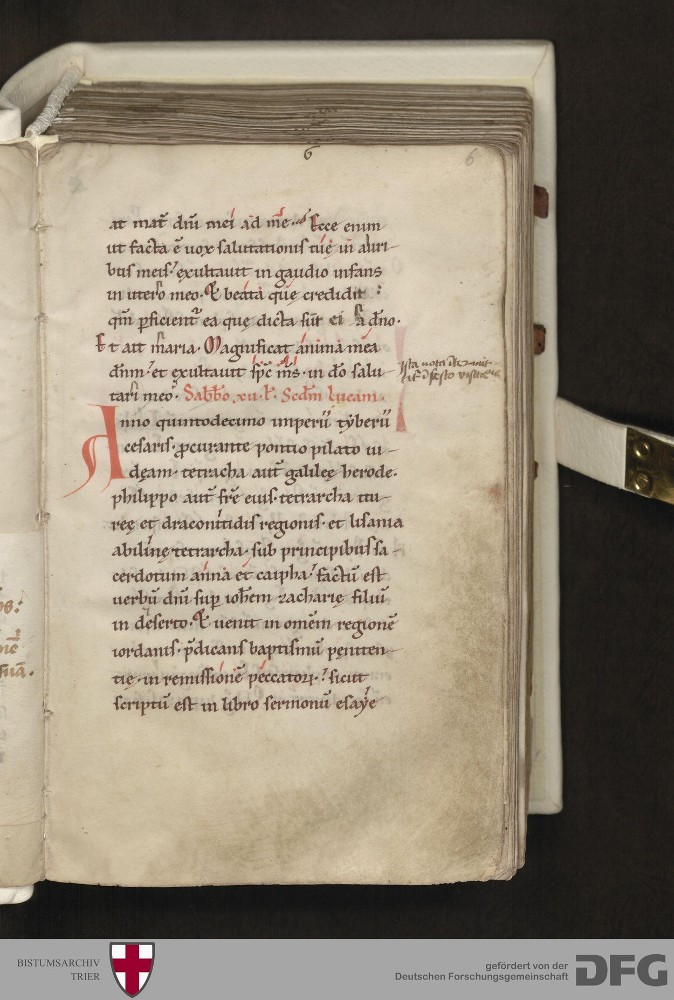 6
6
at mat̄ dn̄i mei ad me. Ecce enim
ut facta ē uox salutationis tuę in auri-
bus meis. exultauit in gaudio infans
in utero meo. Et beata quę credidit
qm̄ pficient̄ ea quę dicta sūt ei a dn̄o.
Et ait maria. Magnificat anima mea
dn̄m. et exultauit sp̄c ms̄. in do salu-
tari meo. Sabb̄o xv. Scdm̄ lucam.
Anno quintodecimo imperii tyberii
cesaris. pcurante pontio pilato iu-
dęam. tetracha aut̄ galileę herode.
philippo aut̄ fr̄e eius. tetrarcha itu-
reę et draconitidis regionis. et lisania
abilinę tetrarcha. sub principibus sa-
cerdotum anna et caipha. factū est
uerbū dn̄i sup ioh̄em zacharię filiū
in deserto. Et uenit in omēm regionē
iordanis. p̄dicans baptismū pęniten-
tię. in remissionē peccatorꝝ. sicut
scriptū est in libro sermonū esaye
BISTUMSARCHIV
TRIER
gefördert von der
Deutschen Forschungsgemeinschaft
DFG